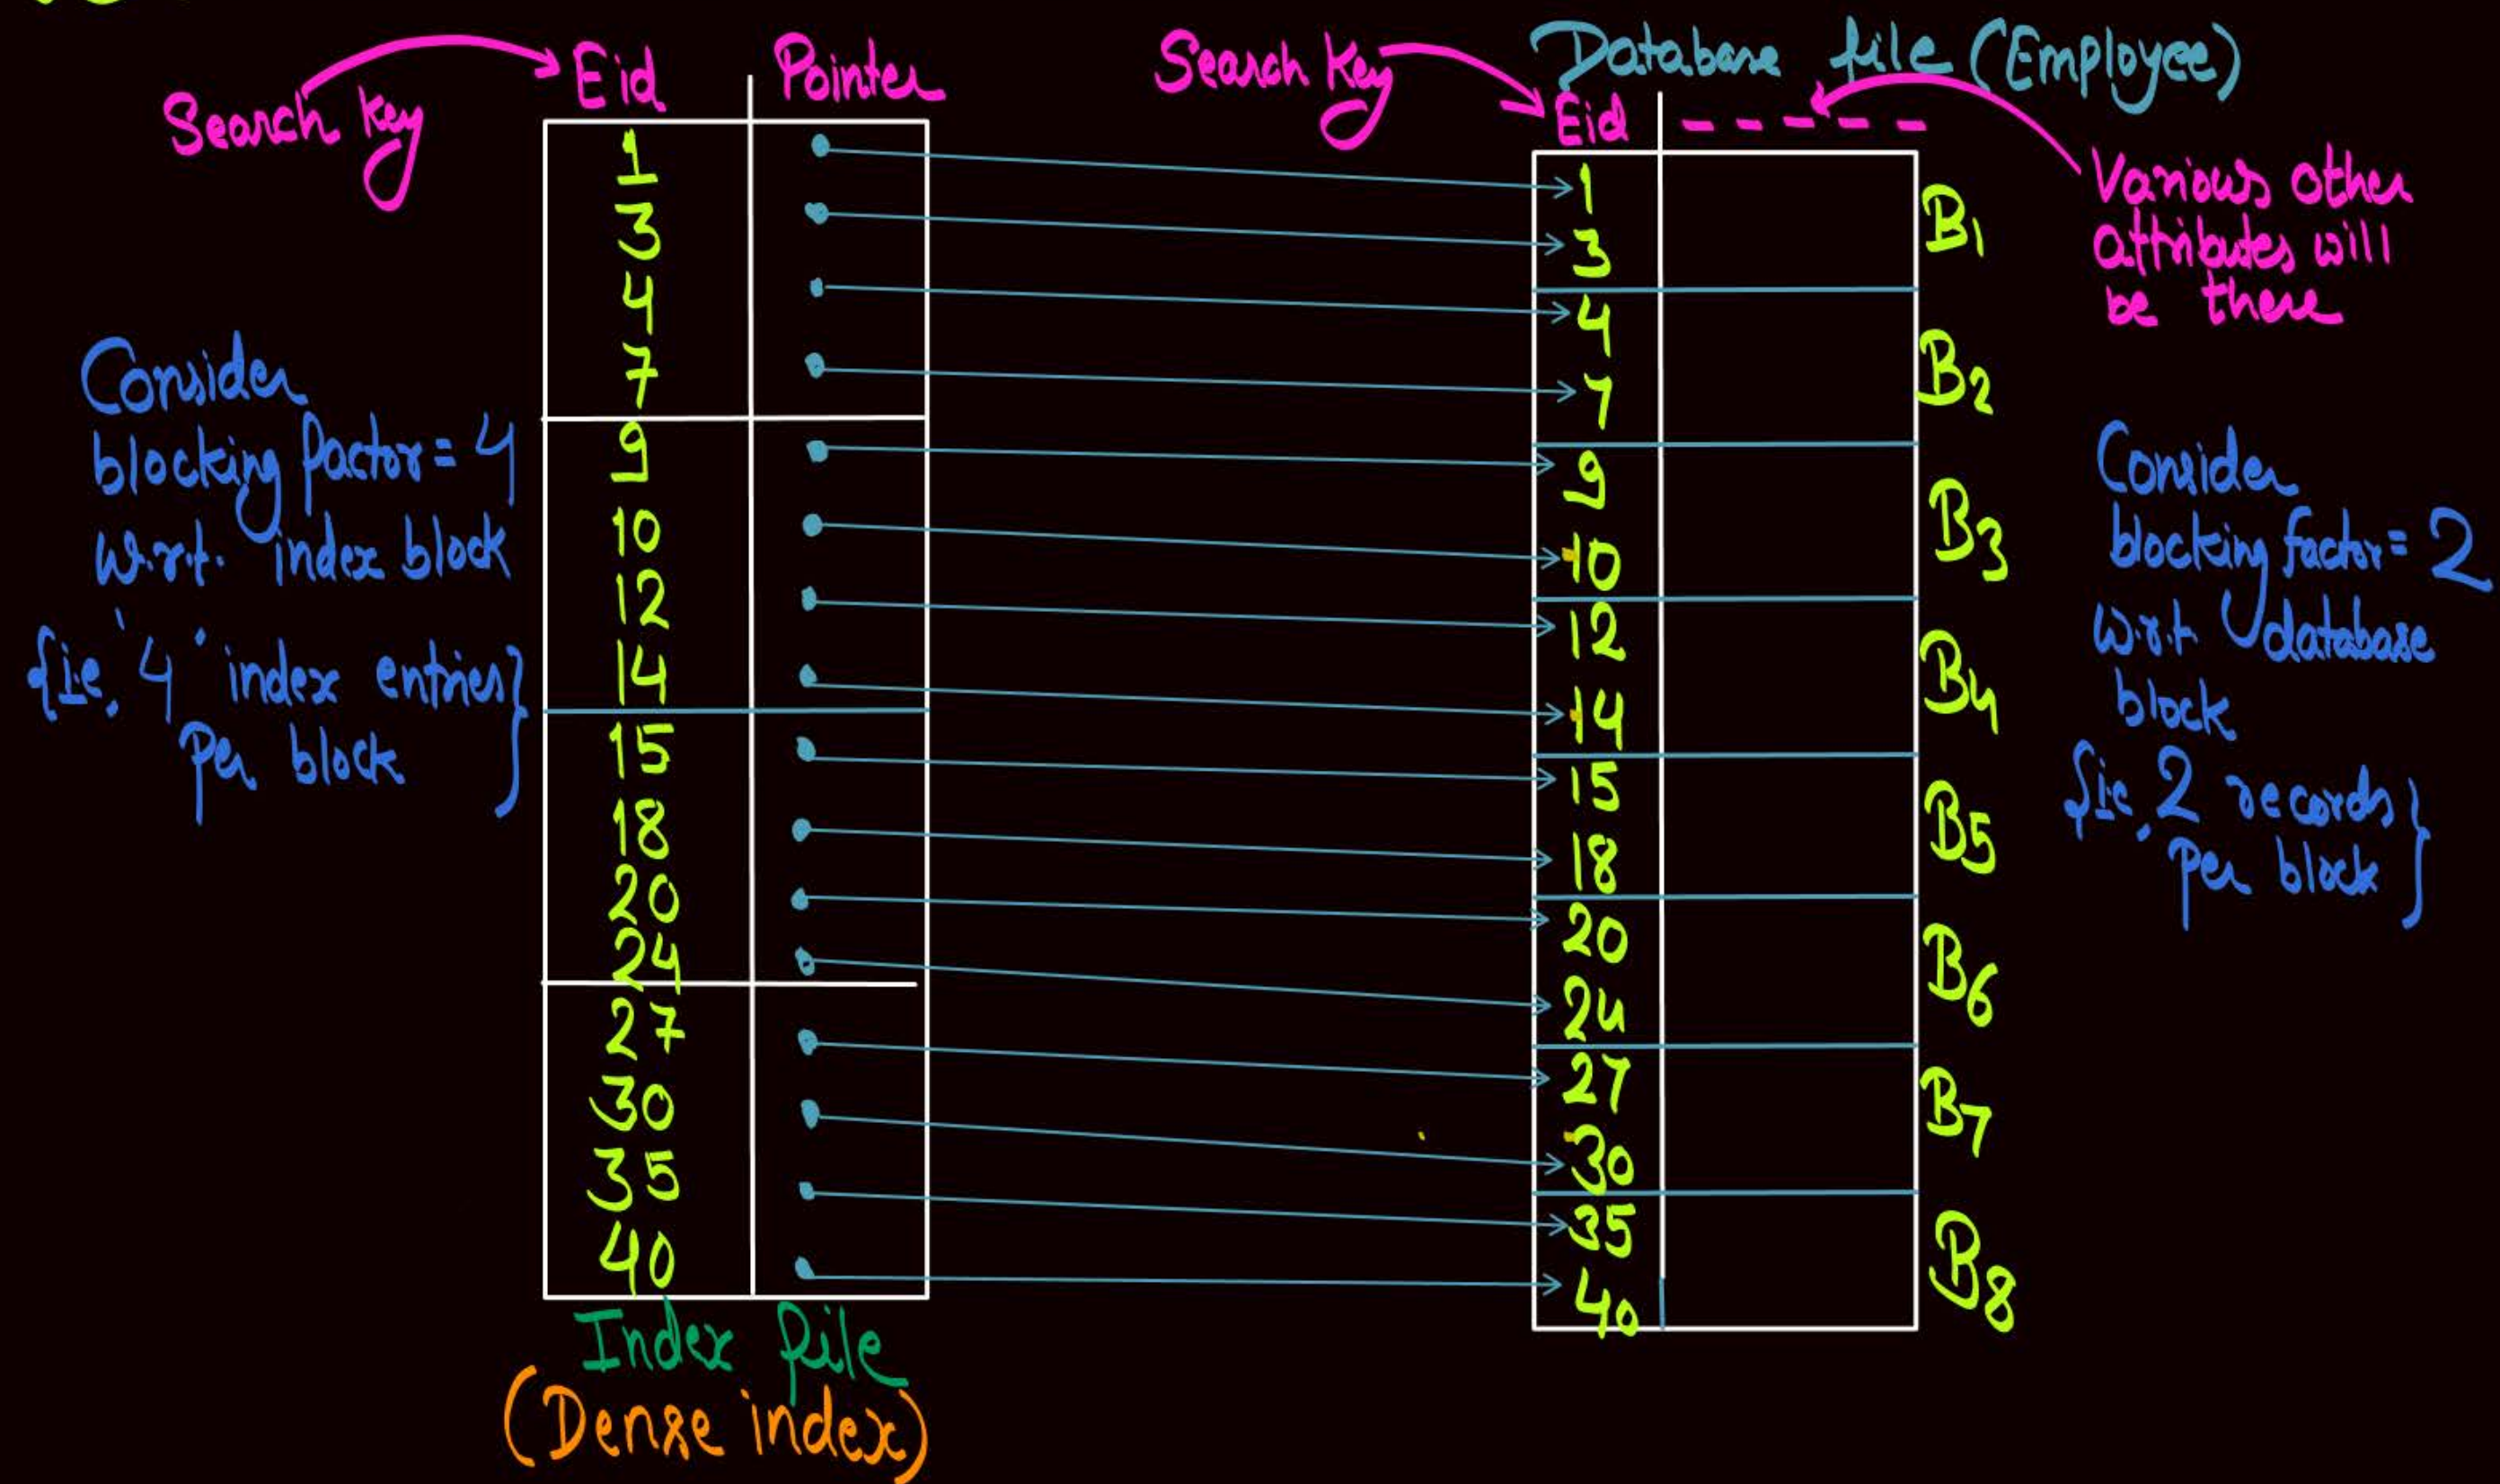 Search key
Eid Pointer
1
3
4
7
9
10
12
14
15
18
20
24
27
30
35
40
Index file
(Dense index)
Consider
blocking factor = 4
w.r.t. index block
{i.e. '4' index entries}
per block
Search key
Database file (Employee)
Eid - - - - -
1
3
4
7
9
10
12
14
15
18
20
24
27
30
35
40
B1
B2
B3
B4
B5
B6
B7
B8
Various other
attributes will
be there
Consider
blocking factor = 2
w.r.t database
block
{i.e. 2 records}
per block